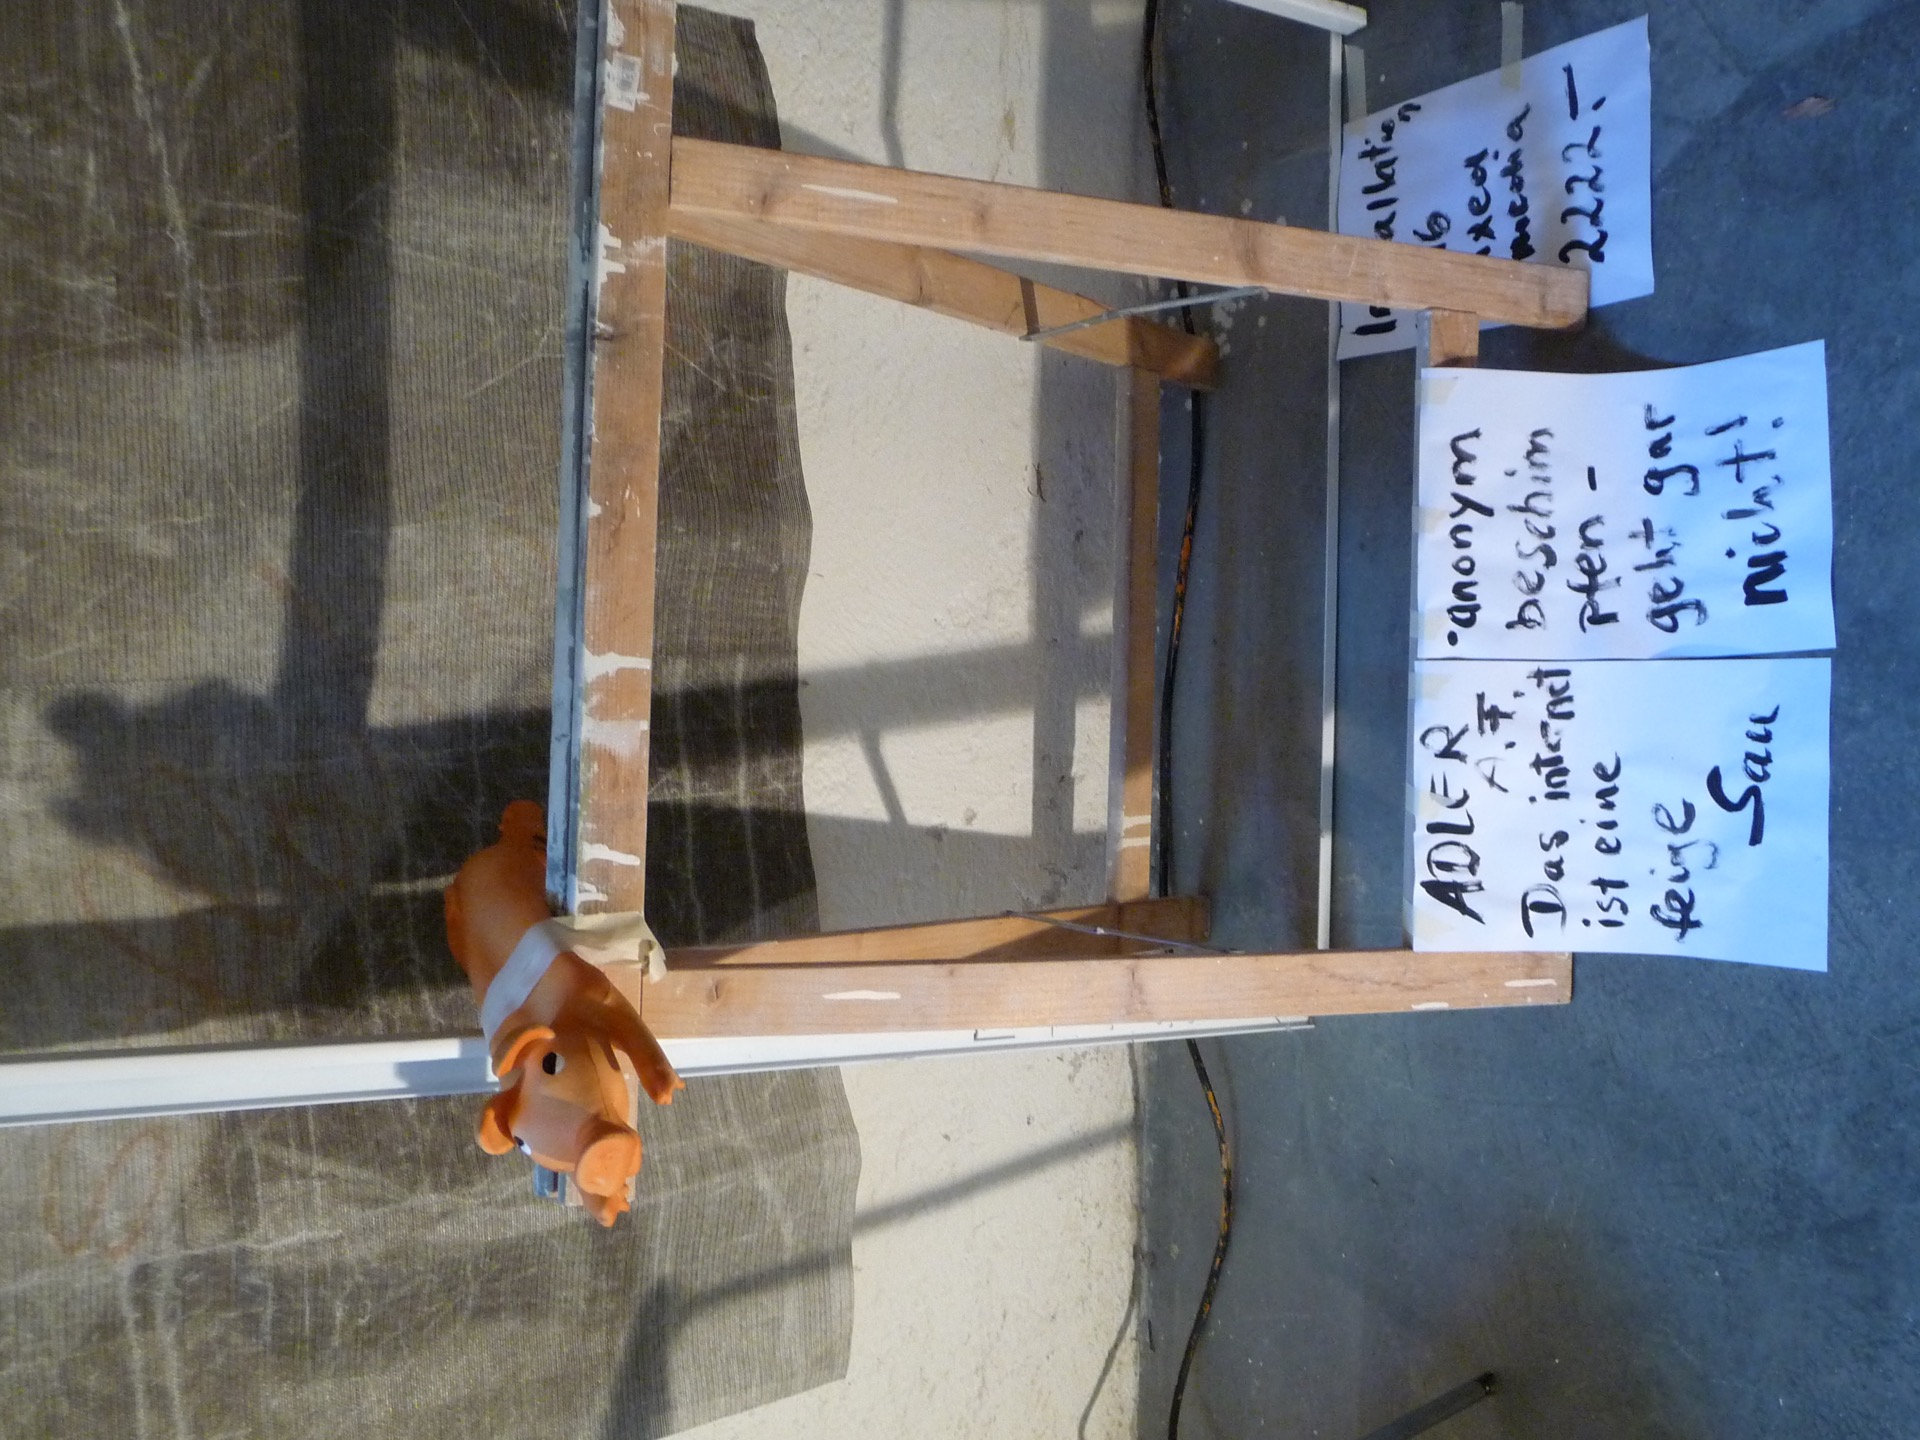 ADLER
A.F.
Das internet
ist eine
feige
Sau
•anonym
beschim
pfen -
geht gar
nicht!
media
2222,-